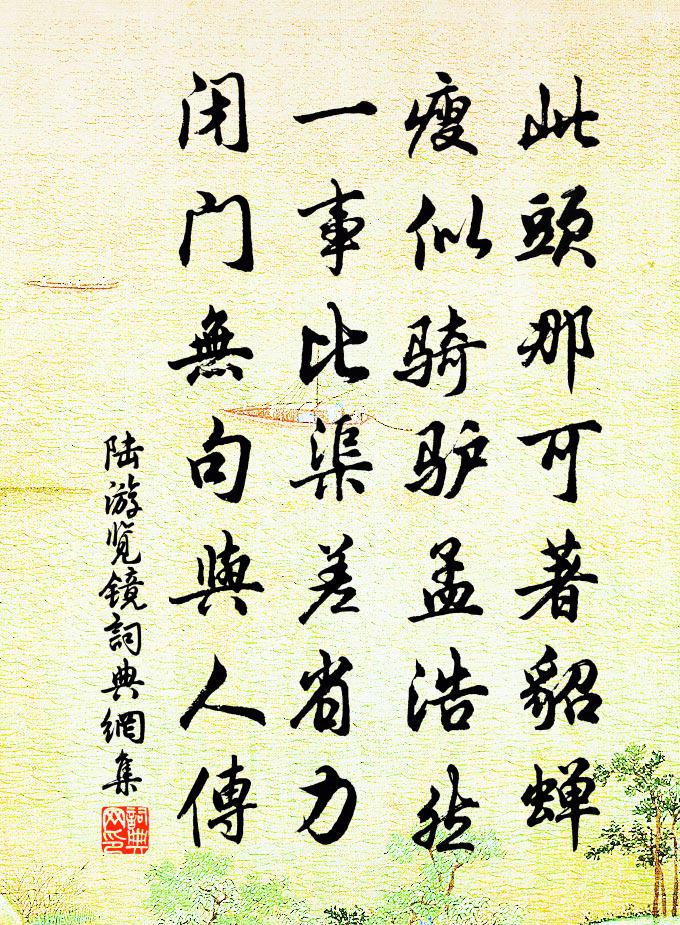 此頭那可著貂蝉
瘦似骑驴孟浩然
一事比渠差省力
闭门無句與人傳
陆游览镜詞典網集
詞典网印